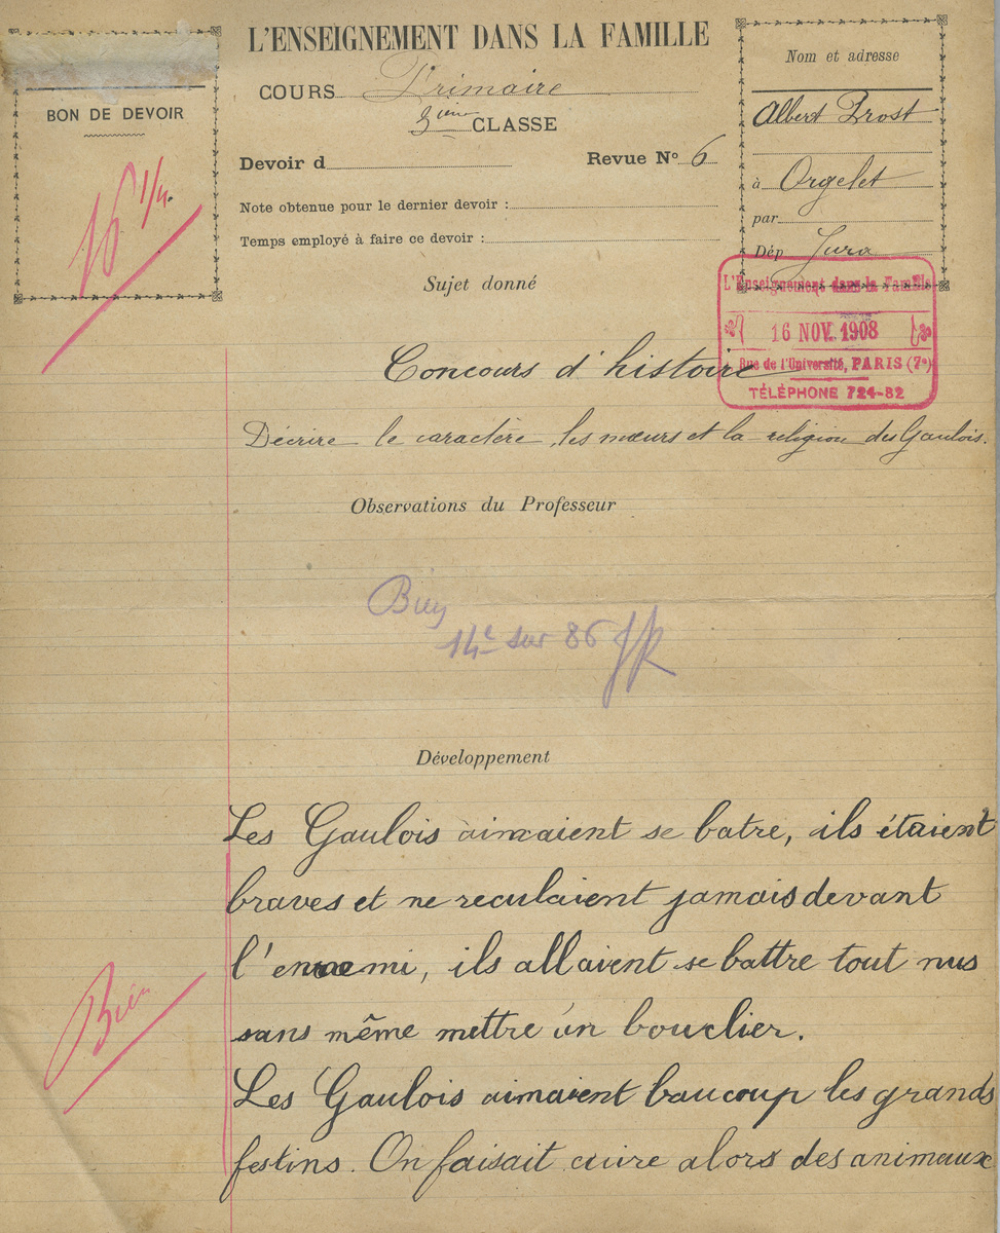 L'ENSEIGNEMENT DANS LA FAMILLE
BON DE DEVOIR
16 1/4.
COURS Primaire
3ième CLASSE
Devoir d
Revue N° 6
Note obtenue pour le dernier devoir :
Temps employé à faire ce devoir :
Nom et adresse
Albert Prost
à Orgelet
par
Dép Jura
L'Enseignement dans la Famille
16 NOV. 1908
Rue de l'Université, PARIS (7e)
TÉLÉPHONE 724-82
Sujet donné
Concours d'histoire
Décrire le caractère, les mœurs et la religion des Gaulois.
Observations du Professeur
Bien
14e sur 86
Développement
Les Gaulois aimaient se batre, ils étaient
braves et ne reculaient jamais devant
l'ennemi, ils allaient se battre tout nus
sans même mettre un bouclier.
Bien
Les Gaulois aimaient baucoup les grands
festins. On faisait cuire alors des animaux